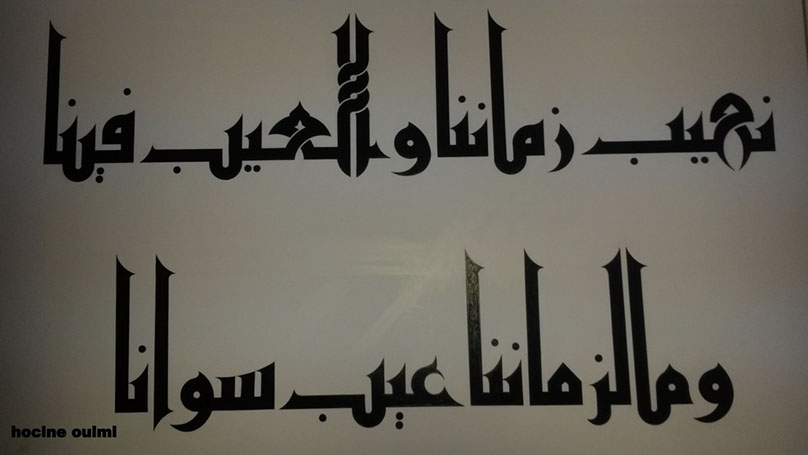 نعيب زماننا والعيب فينا
وما لزماننا عيب سوانا
hocine oulmi